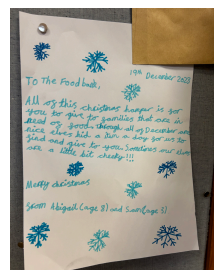 19th December 2023
To The Foodbank,
All of this christmas hamper is for
you to give to families that are in
need of good. through all of December our
nice elves hid a item a day for us to
find and give to you. Sometimes our elves
are a little bit cheeky!!!
Merry christmas
from Abigail (age 8) and Sam (age 5)